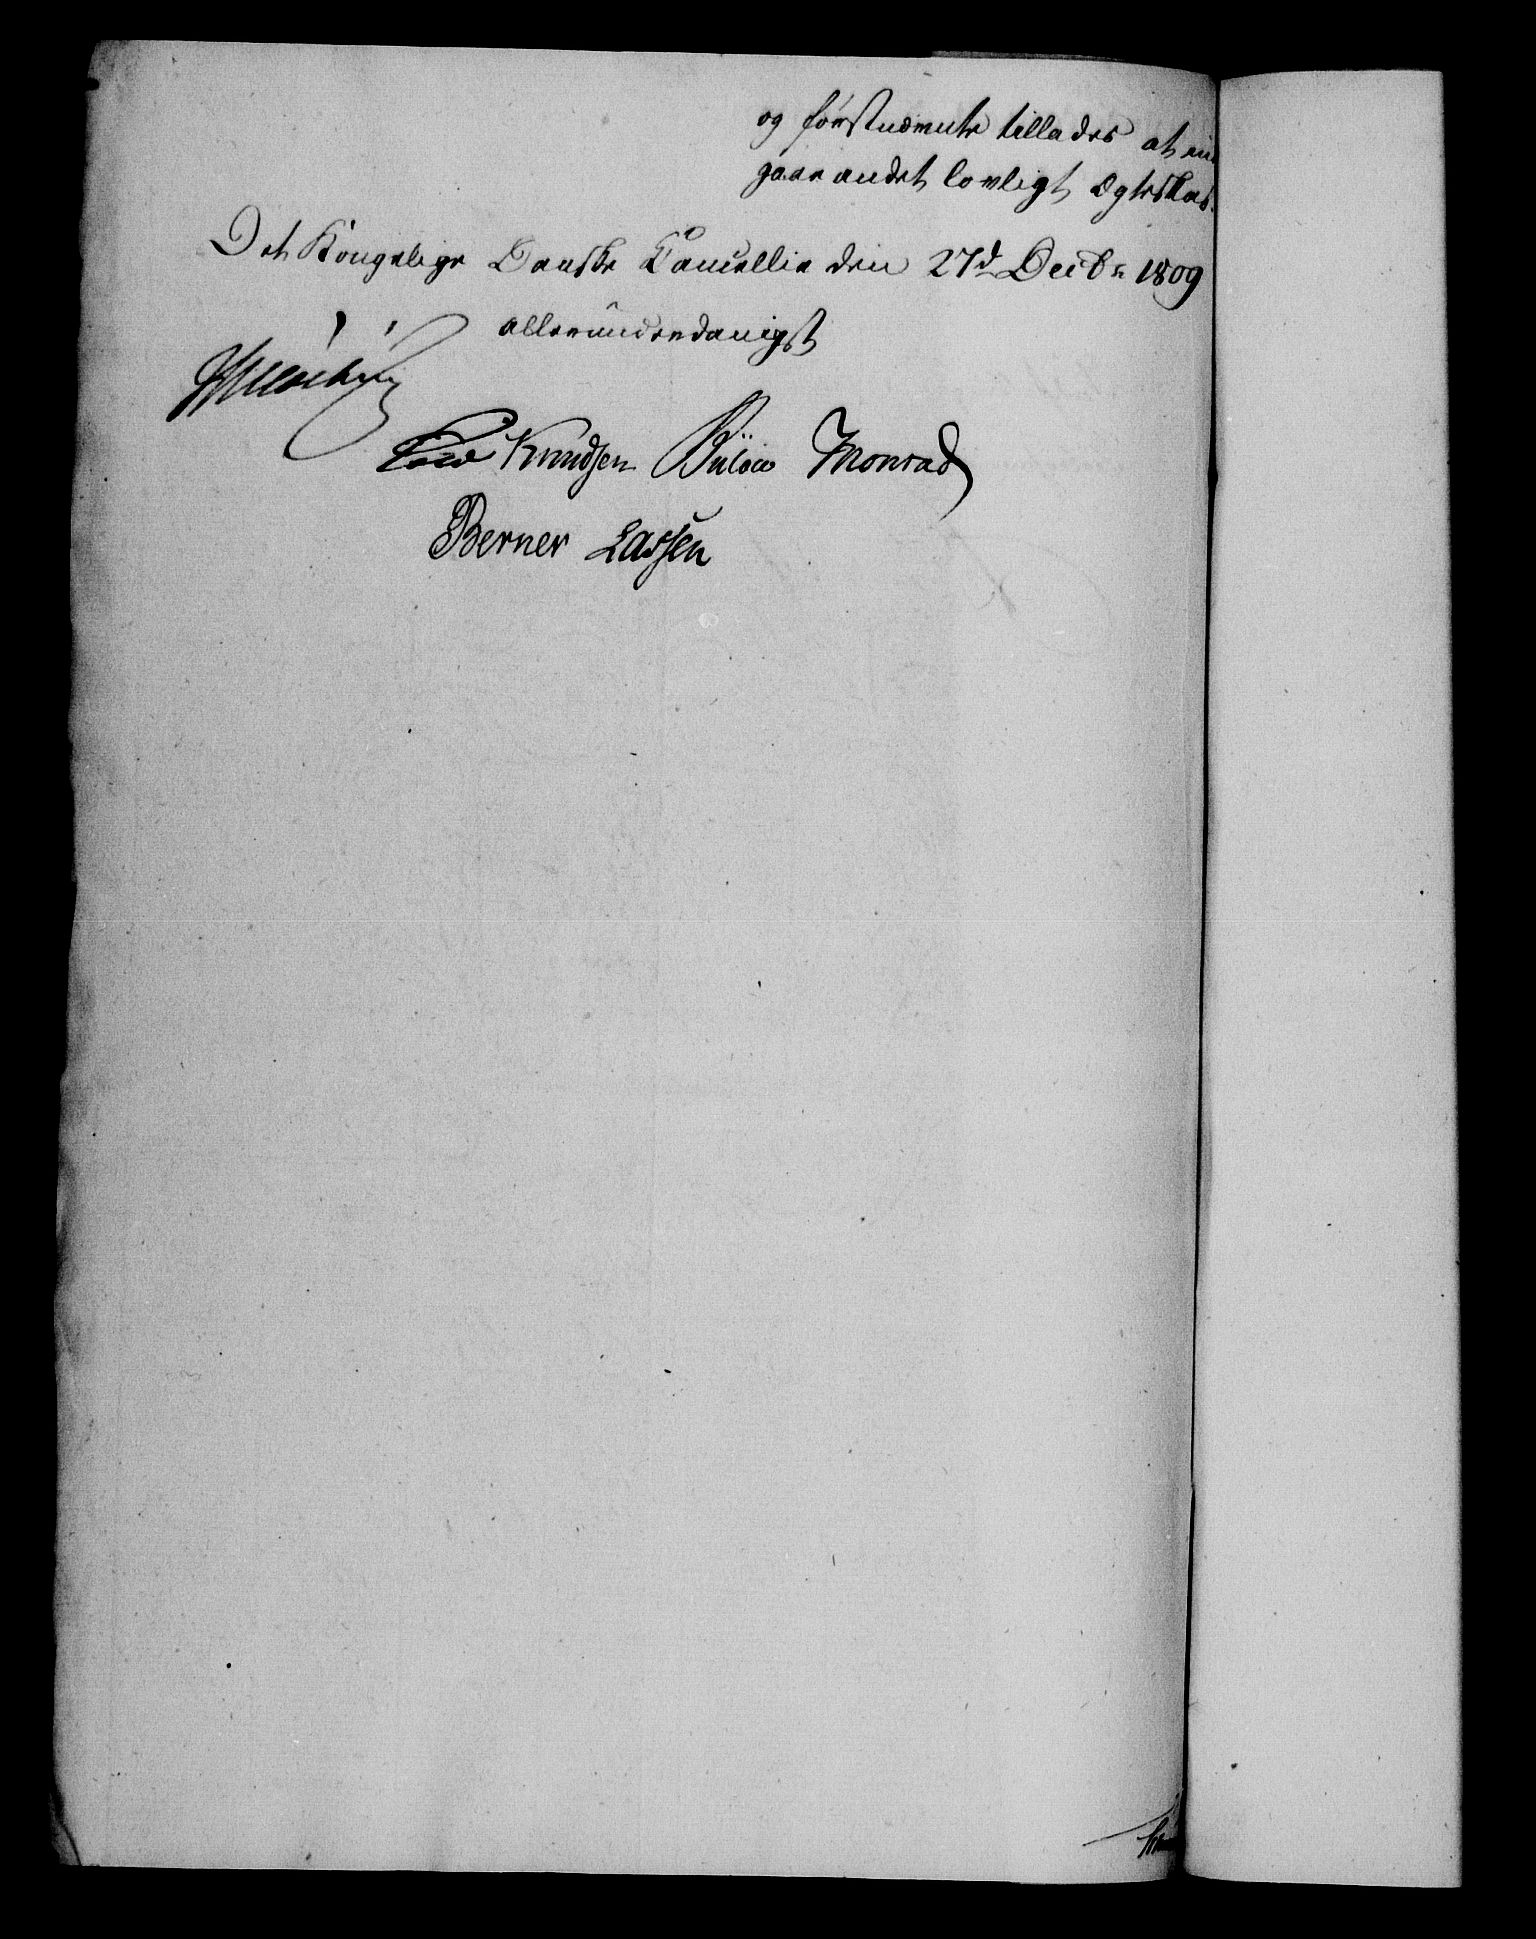 og förstnævnte tillades at ind
gaae andet lovligt Ægteskab.
Det Kongelige Danske Cancellie den 27d Decbr 1809
allerunderdanigst
Knudsen Bülow Monrad
Berner Lassen